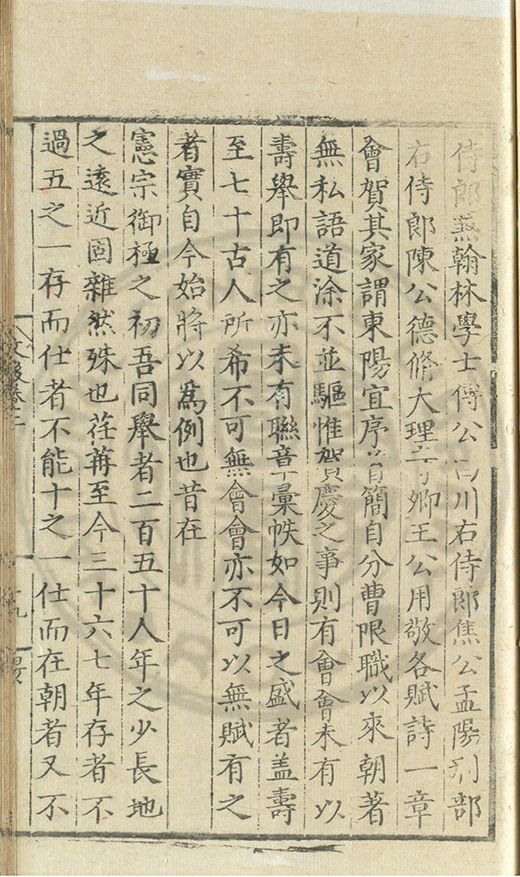 侍郎蕪翰林學士傅公曰川右侍郎焦公孟陽刑部
右侍郎陳公德脩大理寺卿王公用敬各賦詩一章
會賀其家謂東陽宜序首簡自分曹限職以來朝著
無私語道途不並驅惟賀慶之事則有會會未有以
壽舉即有之亦未有聯章彙帙如今日之盛者盖壽
至七十古人所希不可無會會亦不可以無賦有之
者實自今始將以爲例也昔在
憲宗御極之初吾同舉者二百五十人年之少長地
之遠近固雜然殊也荏苒至今三十六七年存者不
過五之一存而仕者不能十之一仕而在朝者又不
文後卷三